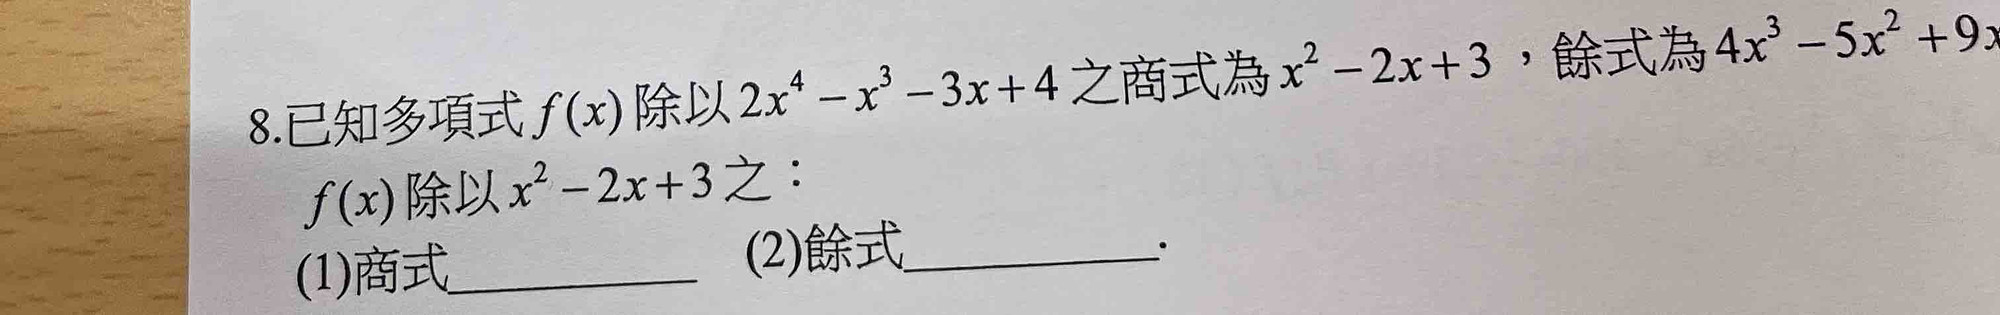 8.已知多項式 f(x) 除以 2x⁴ − x³ − 3x + 4 之商式為 x² − 2x + 3，餘式為 4x³ − 5x² + 9x
f(x) 除以 x² − 2x + 3 之：
(1)商式__________ (2)餘式__________.